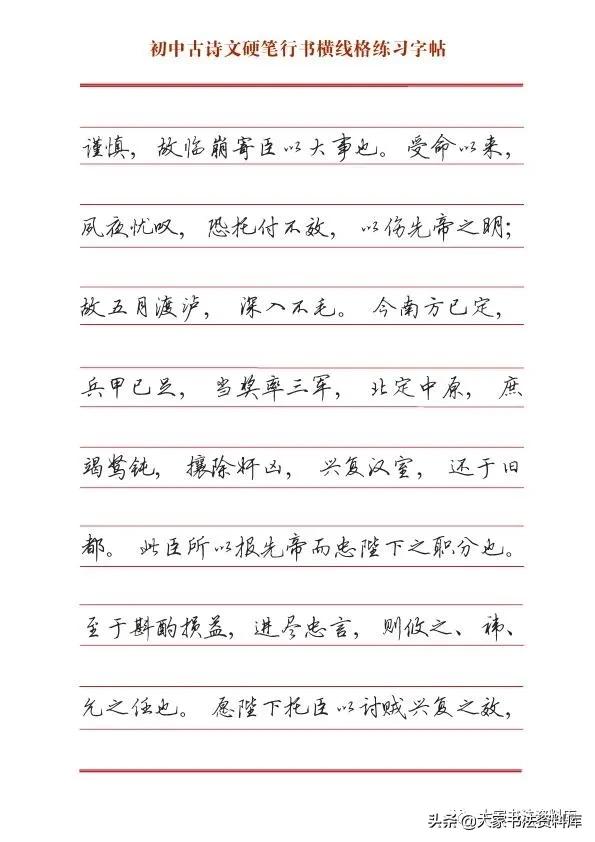 初中古诗文硬笔行书横线格练习字帖
谨慎，故临崩寄臣以大事也。受命以来，
夙夜忧叹，恐托付不效，以伤先帝之明；
故五月渡泸，深入不毛。今南方已定，
兵甲已足，当奖率三军，北定中原，庶
竭驽钝，攘除奸凶，兴复汉室，还于旧
都。此臣所以报先帝而忠陛下之职分也。
至于斟酌损益，进尽忠言，则攸之、祎、
允之任也。愿陛下托臣以讨贼兴复之效，
大家书法资料库
头条@大家书法资料库